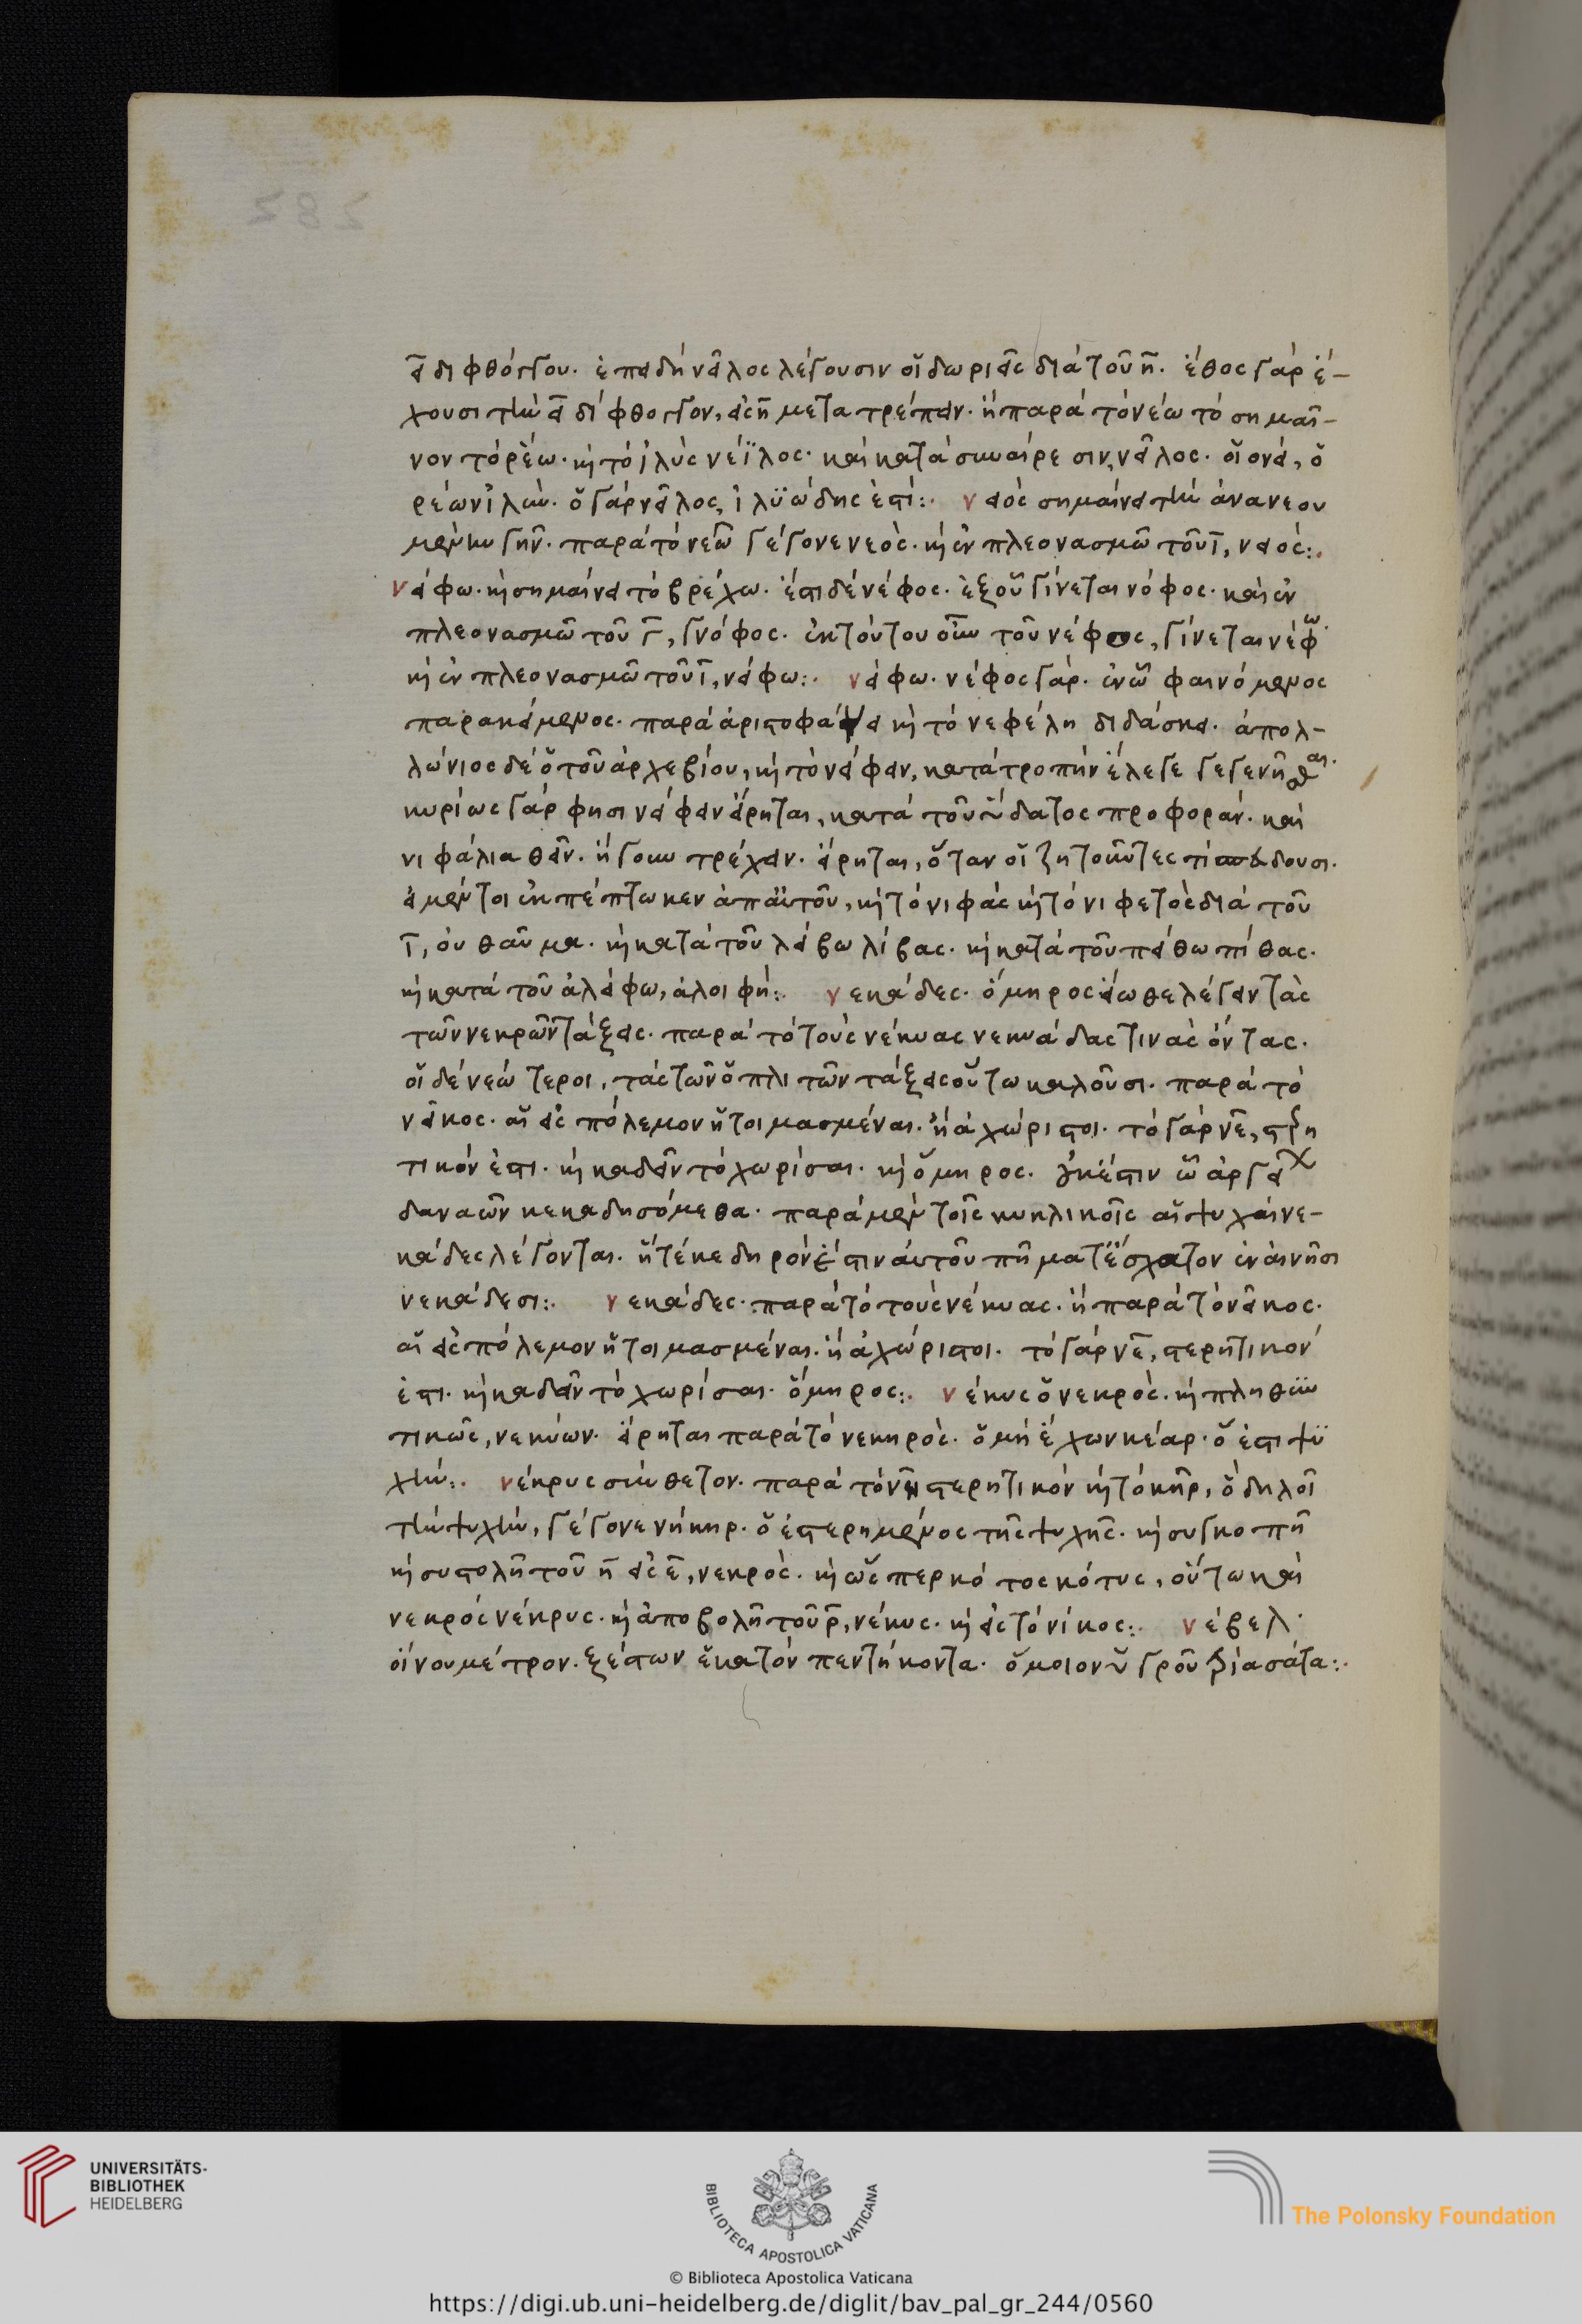 ει διφθόγγου. ἐπειδὴ νεῖλος λέγουσιν οἱ δωριεῖς διὰ τοῦ η. ἔθος γὰρ ἔ-
χουσι τὴν ει δίφθογγον, εἰς η μετατρέπειν. ἢ παρὰ τὸ νέω τὸ σημαῖ-
νον τὸ ῥέω. καὶ τὸ ἰλὺς νέϊλος. καὶ κατὰ συναίρεσιν, νεῖλος. οἱονεὶ, ὁ
ῥέων ἰλὺν. ὁ γὰρ νεῖλος, ἰλϋώδης ἐστί:. νειὸς σημαίνει τὴν ἀνανεου
μένην γῆν. παρὰ τὸ νεῶ γέγονε νεὸς. καὶ ἐν πλεονασμῶ τοῦ ι, νειός:.
νείφω. καὶ σημαίνει τὸ βρέχω. ἔστι δὲ νέφος. ἐξ οὗ γίνεται νόφος. καὶ ἐν
πλεονασμῶ τοῦ γ, γνόφος. ἐκ τούτου οὖν τοῦ νέφος, γίνεται νέφω.
καὶ ἐν πλεονασμῶ τοῦ ι, νείφω:. νείφω. νέφος γὰρ. ἐν ὧ φαινόμενος
παρακείμενος. παρὰ ἀριστοφάνει καὶ τὸ νεφέλη διδάσκει. ἀπολ-
λώνιος δὲ ὁ τοῦ ἀρχεβίου, καὶ τὸ νείφειν, κατὰ τροπὴν ἔλεγε γεγενῆσθαι.
κυρίως γὰρ φησι νείφειν εἴρηται, κατὰ τοῦ ὕδατος προφορὰν. καὶ
νιφάλια θεῖν. ἤγουν τρέχειν. εἴρηται, ὅταν οἱ ζητοῦντες τι δουσι.
εἰ μέντοι ἐκπέπτωκεν ἀπ αὐτοῦ, καὶ τὸ νιφὰς καὶ τὸ νιφετὸς διὰ τοῦ
ι, οὐ θαῦμα. καὶ κατὰ τοῦ λείβω λίβας. καὶ κατὰ τοῦ πείθω πίθας.
καὶ κατὰ τοῦ ἀλείφω, ἀλοιφή:. νεκάδες. ὅμηρος εἴωθε λέγειν τὰς
τῶν νεκρῶν τάξεις. παρὰ τὸ τοὺς νέκυας νεκυάδας τινας ὄντας.
οἱ δὲ νεώτεροι, τὰς τῶν ὁπλιτῶν τάξεις οὕτω καλοῦσι. παρὰ τὸ
νεῖκος. αἱ εἰς πόλεμον ἡτοιμασμέναι. ἢ ἀχώριστοι. τὸ γὰρ νε, στερη
τικόν ἐστι. καὶ καδεῖν τὸ χωρίσαι. καὶ ὅμηρος. οὐκέτιν ὦ ἀργεῖ
δαναῶν κεκαδησόμεθα. παρὰ μὲν τοῖς κυκλικοῖς αἱ ψυχαὶ νε-
κάδες λέγονται. ἤ τέκε δηρόν ἐστιν αὐτοῦ πῆματ ἔσχατον ἐν αἰνῆσι
νεκάδεσι:. νεκάδες. παρὰ τὸ τοὺς νέκυας. ἢ παρὰ τὸ νεῖκος.
αἱ εἰς πόλεμον ἡτοιμασμέναι. ἢ ἀχώριστοι. τὸ γὰρ νε, στερητικόν
ἐστι. καὶ καδεῖν τὸ χωρίσαι. ὅμηρος:. νέκυς ὁ νεκρὸς. καὶ πληθυν
τικῶς, νεκύων. εἴρηται παρὰ τὸ νεκηρὸς. ὁ μὴ ἔχων κέαρ. ὅ ἐστι ψυ
χὴν:. νέκρυς σύνθετον. παρὰ τὸ νη στερητικὸν καὶ τὸ κῆρ, ὃ δηλοῖ
τὴν ψυχὴν, γέγονε νήκηρ. ὁ ἐστερημένος τῆς ψυχῆς. καὶ συγκοπῆ
καὶ συστολῆ τοῦ η εἰς ε, νεκρὸς. καὶ ὥσπερ κότος κότυς, οὕτω καὶ
νεκρὸς νέκρυς. καὶ ἀποβολῆ τοῦ ρ, νέκυς. καὶ εἰς τὸ νίκος:. νέβελ.
οἴνου μέτρον. ξέστων ἑκατὸν πεντήκοντα. ὅμοιον ὑγροῦ σάτα:.
UNIVERSITÄTS-
BIBLIOTHEK
HEIDELBERG
BIBLIOTECA APOSTOLICA VATICANA
The Polonsky Foundation
© Biblioteca Apostolica Vaticana
https://digi.ub.uni-heidelberg.de/diglit/bav_pal_gr_244/0560